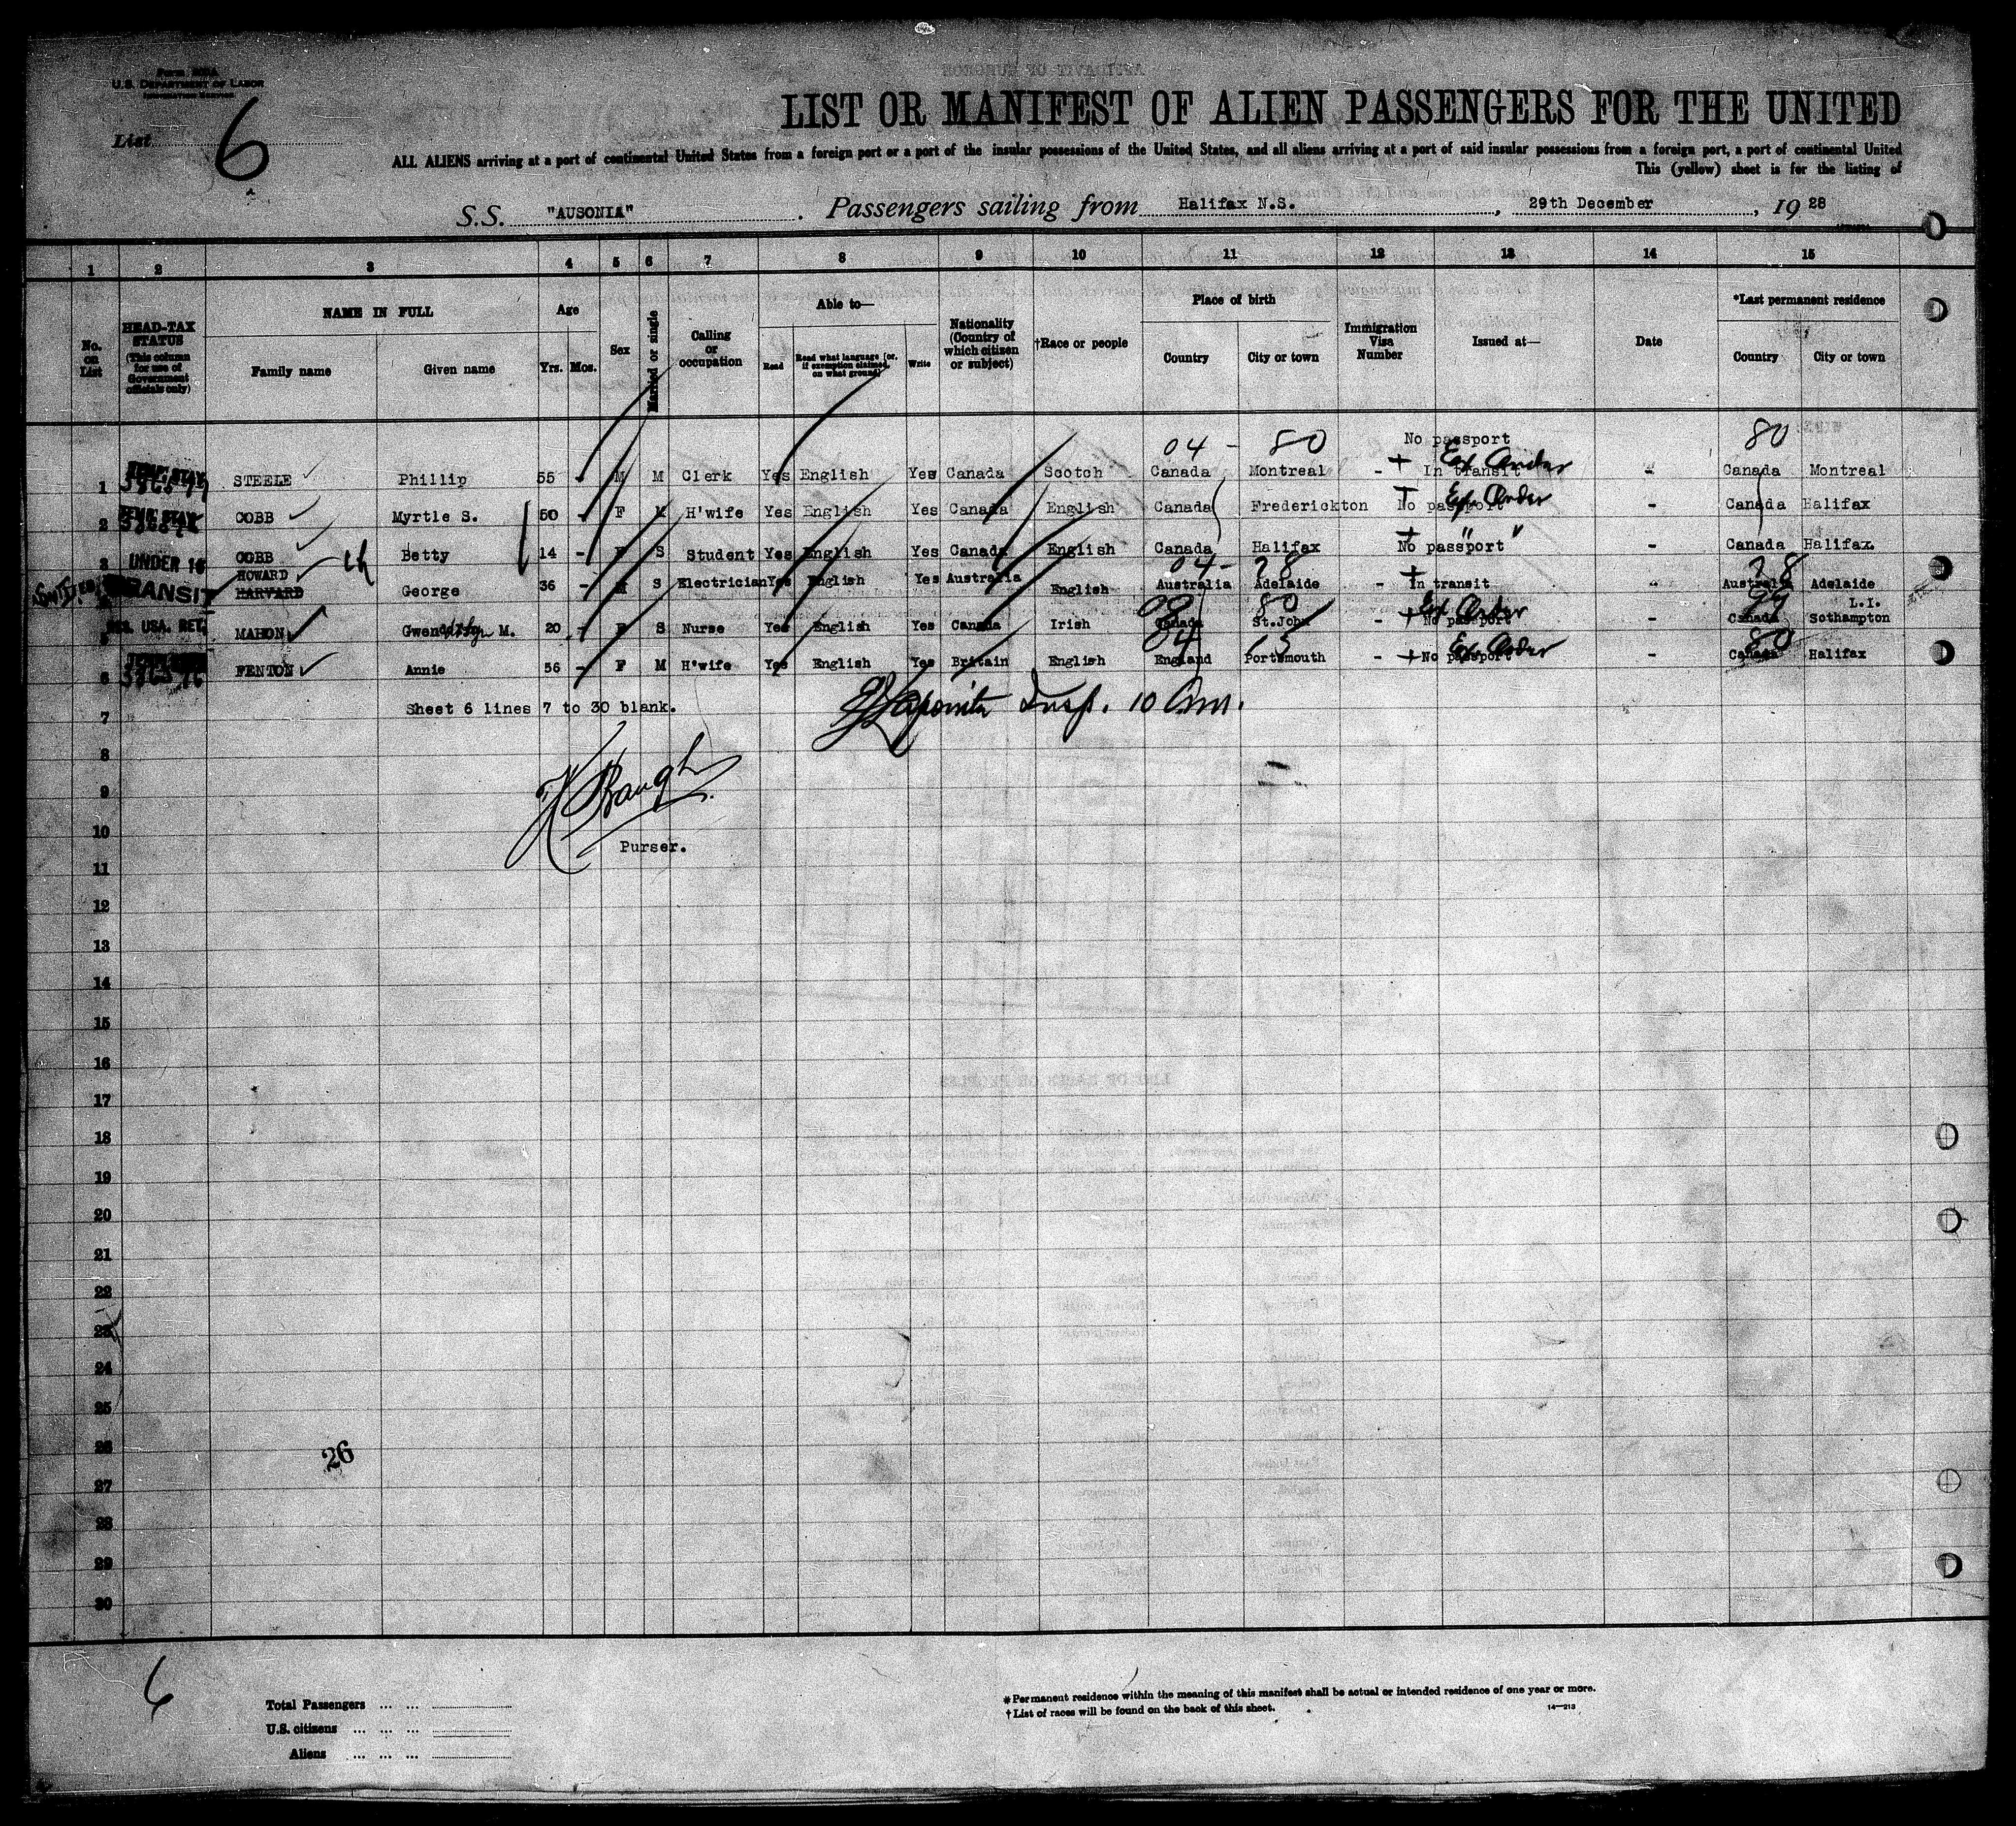 U.S. DEPARTMENT OF LABOR
List 6
LIST OR MANIFEST OF ALIEN PASSENGERS FOR THE UNITED
ALL ALIENS arriving at a port of continental United States from a foreign port or a port of the insular possessions of the United States, and all aliens arriving at a port of said insular possessions from a foreign port, a port of continental United
This (yellow) sheet is for the listing of
S.S. "AUSONIA". Passengers sailing from Halifax N.S., 29th December, 1928
1 2 3 4 5 6 7 8 9 10 11 12 13 14 15
No. on List
HEAD-TAX STATUS (This column for use of Government officials only)
NAME IN FULL
Family name Given name
Age
Yrs. Mos.
Sex
Married or single
Calling or occupation
Able to—
Read Read what language (or, if exemption claimed, on what ground) Write
Nationality (Country of which citizen or subject)
†Race or people
Place of birth
Country City or town
Immigration Visa Number
Issued at—
Date
*Last permanent residence
Country City or town
04 - 80 No passport 80
1 STEELE Phillip 55 - M M Clerk Yes English Yes Canada Scotch Canada Montreal - + In transit Ex Order - Canada Montreal
2 COBB Myrtle S. 50 - F M H'wife Yes English Yes Canada English Canada Frederickton + No passport Ex Order - Canada Halifax
3 UNDER 16 COBB Betty 14 - F S Student Yes English Yes Canada English Canada Halifax + No passport " " - Canada Halifax.
04- 28 28
TRANSIT HOWARD HARVARD George 36 - M S Electrician Yes English Yes Australia English Australia Adelaide - + In transit - Australia Adelaide
80 99 L.I.
5 USA. RET. MAHON Gwendolyn M. 20 - F S Nurse Yes English Yes Canada Irish Canada St.John - + No passport Ex Order - Canada Sothampton
04 15 80
6 FENTON Annie 56 - F M H'wife Yes English Yes Britain English England Portsmouth - + No passport Ex Order - Canada Halifax
7 Sheet 6 lines 7 to 30 blank. Insp. 10 Am.
8
9 Baugh
10
Purser.
11
12
13
14
15
16
17
18
19
20
21
22
23
24
25
26 26
27
28
29
30
6
Total Passengers ... ...
U.S. citizens ... ... ...
Aliens ... ... ...
*Permanent residence within the meaning of this manifest shall be actual or intended residence of one year or more.
†List of races will be found on the back of this sheet.
14—213